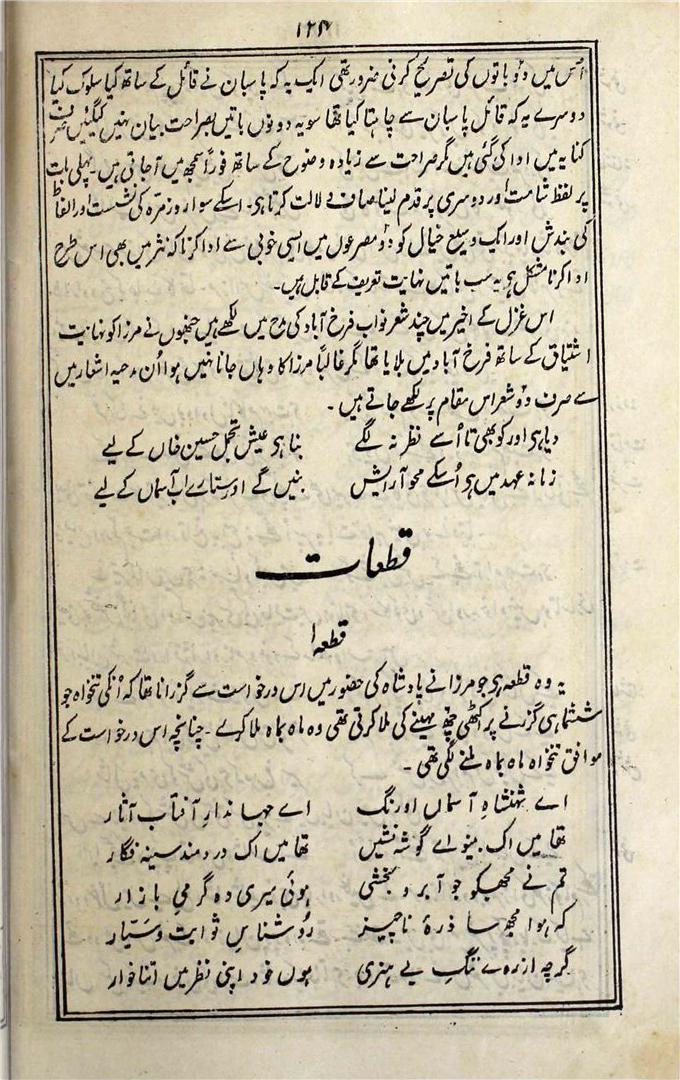 ۱۲۴
اُس میں دو باتوں کی تصریح کرنی ضرور تھی ایک یہ کہ پاسبان نے قائل کے ساتھ کیا سلوک کیا
دوسرے یہ کہ قائل پاسبان سے چاہتا کیا تھا سو یہ دونوں باتیں بصراحت بیان نہیں کیگئیں صرف
کنایہ میں ادا کی گئی ہیں مگر صراحت سے زیادہ وضوح کے ساتھ فوراً سمجھ میں آجاتی ہیں۔ پہلی بات
پر لفظ شامت اور دوسری پر قدم لینا صاف دلالت کرتا ہی۔ اسکے سوا روزمرّہ کی نشست اور الفاظ
کی بندش اور ایک وسیع خیال کو دو مصرعوں میں ایسی خوبی سے ادا کرنا کہ نثر میں بھی اس طرح
ادا کرنا مشکل ہو یہ سب باتیں نہایت تعریف کے قابل ہیں۔
اس غزل کے اخیر میں چند شعر نواب فرخ آباد کی مدح میں لکھے ہیں جنھوں نے مرزا کو نہایت
اشتیاق کے ساتھ فرخ آباد میں بلایا تھا مگر غالباً مرزا کا وہاں جانا نہیں ہوا اُن مدحیہ اشعار میں
سے صرف دو شعر اس مقام پر لکھے جاتے ہیں۔
دیا ہی اور کو بھی تا اُسے نظر نہ لگے بنا ہی عیش تجمل حسین خاں کے لیے
زمانہ عہد میں ہی اُسکے محو آرایش بنیں گے اور ستارے اب آسماں کے لیے
قطعات
قطعہ ۱
یہ وہ قطعہ ہی جو مرزا نے بادشاہ کی حضور میں اس درخواست سے گزرانا تھا کہ اُنکی تنخواہ جو
ششماہی گزرنے پر اکٹھی چھ مہینے کی ملا کرتی تھی وہ ماہ بماہ ملا کرے۔ چنانچہ اس درخواست کے
موافق تنخواہ ماہ بماہ ملنے لگی تھی۔
اے شہنشاہِ آسماں اورنگ اے جہاندارِ آفتاب آثار
تھا میں اک بینواے گوشہ نشیں تھا میں اک درد مند سینہ فگار
تم نے مجھکو جو آبرو بخشی ہوئی میری وہ گرمیِ بازار
کہ ہوا مجھ سا ذرۂ ناچیز رُوشناسِ ثوابت و سَیّار
گرچہ از روے ننگِ بے ہنری ہوں خود اپنی نظر میں اتنا خوار